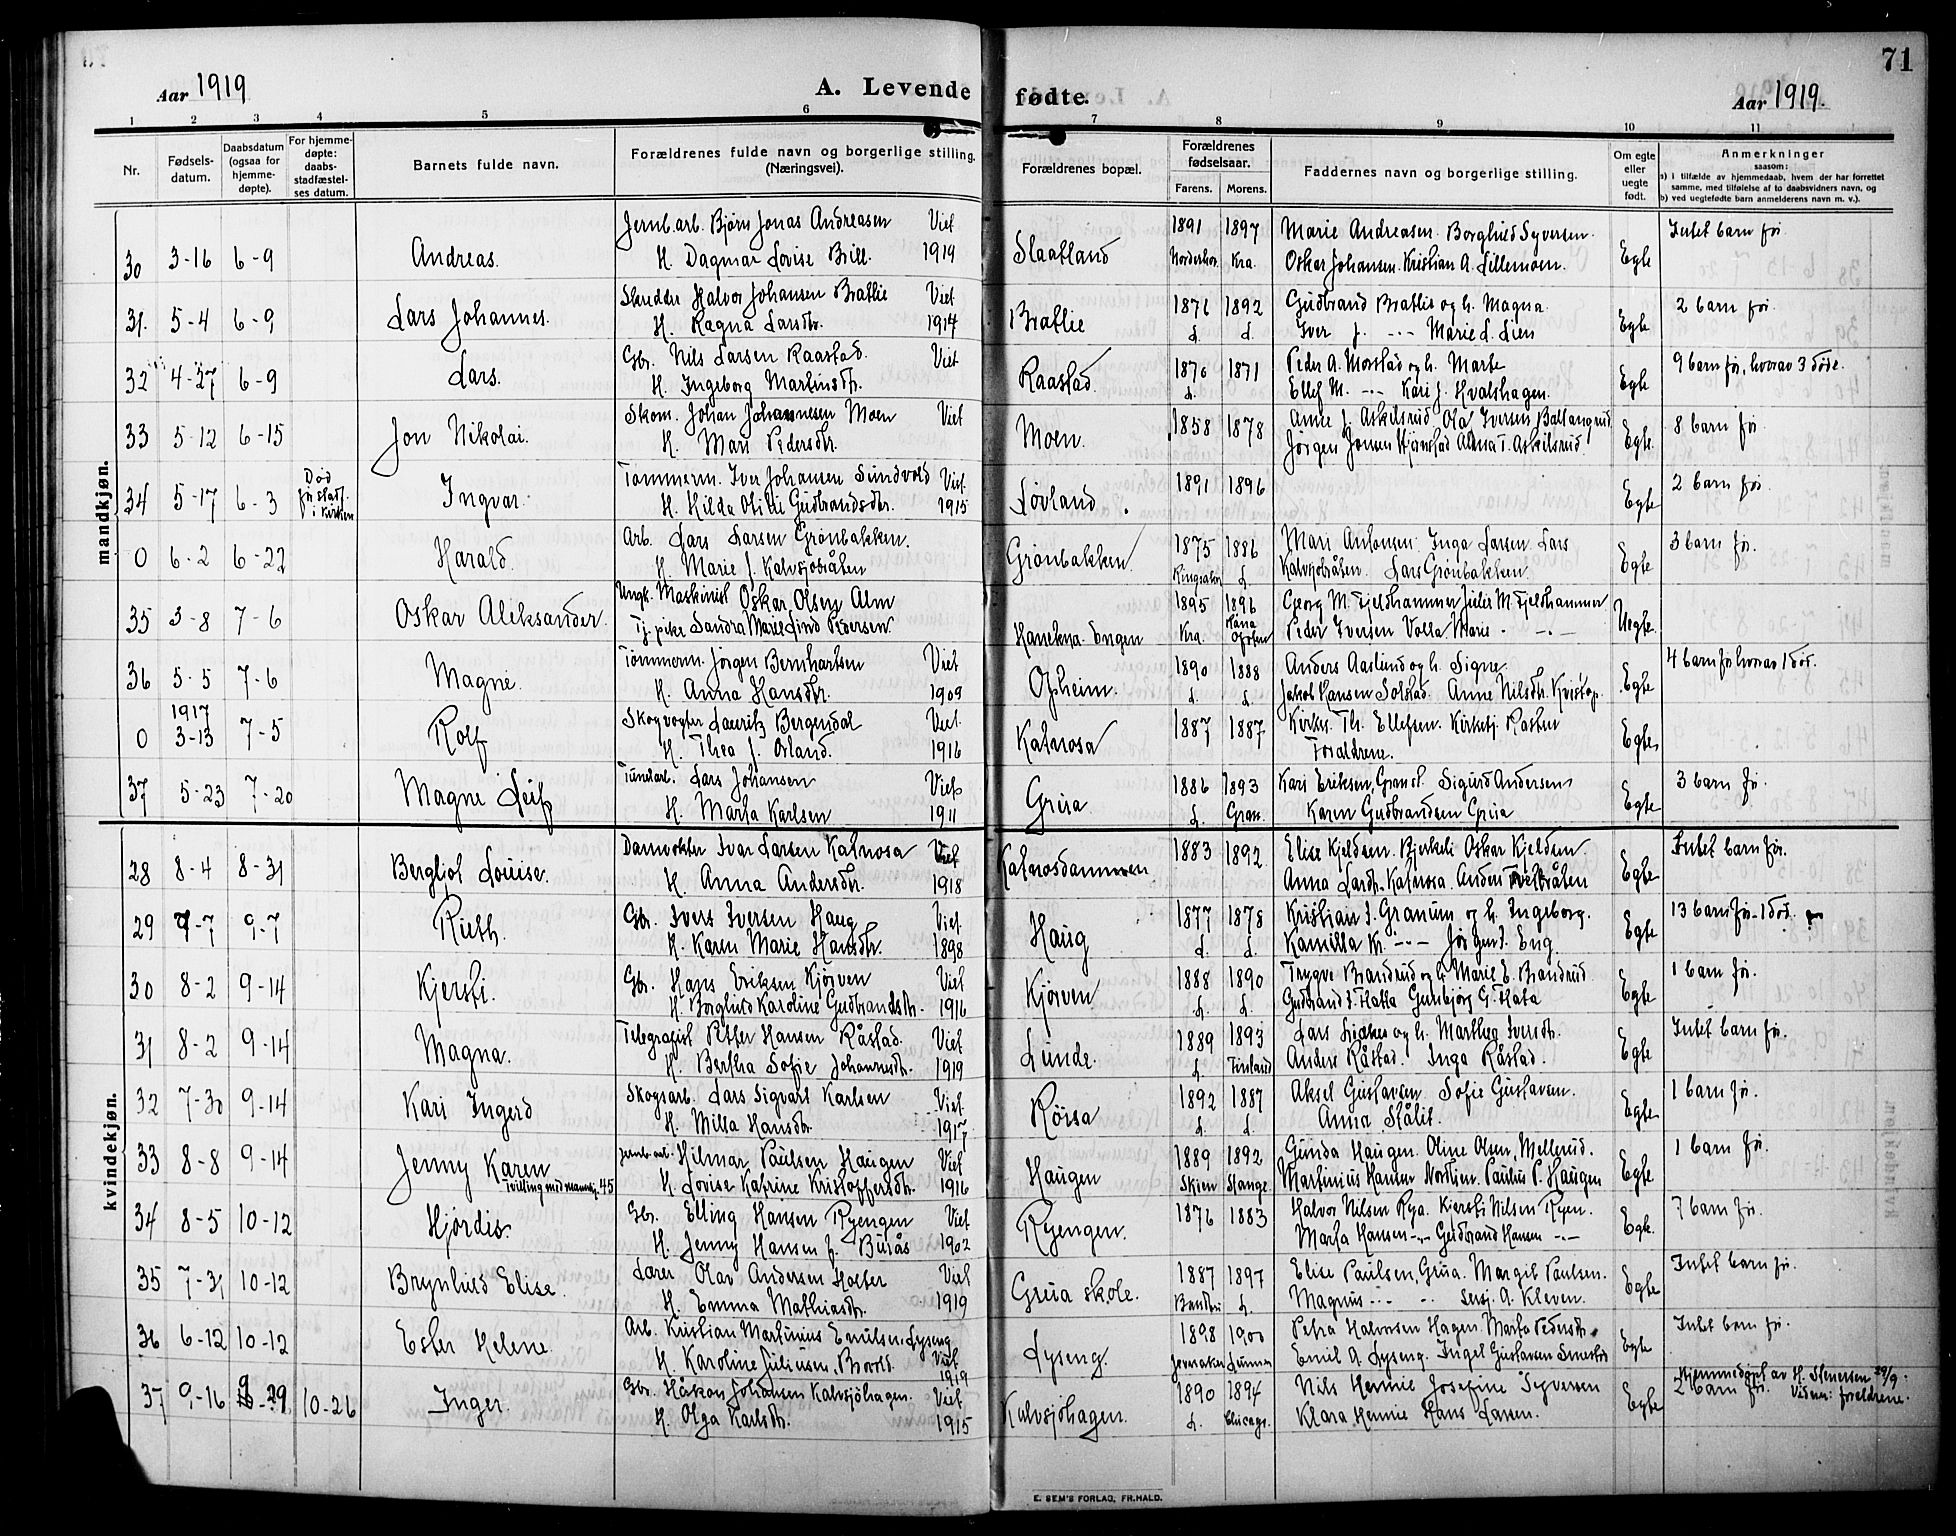 71
Aar 1919
A. Levende fødte.
Aar 1919.
1 2 3 4 5 6 7 8 9 10 11
Nr.
Fødsels-
datum.
Daabsdatum
(ogsaa for
hjemme-
døpte).
For hjemme-
døpte:
daabs-
stadfæstel-
ses datum.
Barnets fulde navn.
Forældrenes fulde navn og borgerlige stilling.
(Næringsvei).
Forældrenes bopæl.
Forældrenes
fødselsaar.
Farens. Morens.
Faddernes navn og borgerlige stilling.
Om egte
eller
uegte
født.
Anmerkninger
saasom:
a) i tilfælde av hjemmedaab, hvem der har forrettet
samme, med tilføielse af to daabsvidners navn, og
b) ved uegtefødte barn anmelderens navn m. v.).
mandkjøn.
Jernb.arb. Bjørn Jonas Andreasen Viet 1891 1897 Marie Andreasen. Borghild Syversen. Intet barn før.
30 3-16 6-9 Andreas. H. Dagmar Lovise Brill. 1919 Slaatland Norderhov. Kra. Oskar Johansen. Kristian A. Lillemoen. Egte
Skrædder Halvor Johansen Bratlie Viet 1876 1892 Gudbrand Bratlie og h. Magna. 2 barn før.
31. 5-4 6-9 Lars Johannes. H. Ragna Larsdtr. 1914 Bratlie L. L. Iver J. -"- Marie L. Lien Egte
Gbr. Nils Larsen Raastad. Viet 1876 1871 Peder A. Morstad og h. Marte 9 barn før, hvorav 3 døde.
32 4-27 6-9 Lars. H. Ingeborg Martinsdtr. Raastad. L. Ellef M. -"- Kari J. Hvalshagen. Egte
Skom. Johan Johannesen Moen Viet 1858 1878 Anne J. Askilsrud Ola Iversen Ballangrud 8 barn før
33 5-12 6-15 Jon Nikolai. H. Mari Pedersdtr. Moen. Jørgen Jonsen Hjerstad Alma T. Askilsrud. Egte.
Tømmerm. Iver Johansen Sundvold Viet. 1891 1896 2 barn før.
34 5-17 6-3 Død før stadf. i kirken Ingvar. H. Hilda Otilie Gudbrandsdtr. 1915 Løvland. Egte
Arb. Lars Larsen Grønbakken. 1875 1886 Mari Antonsen. Inga Larsen. Lars 3 barn før.
0 6-2 6-22 Harald. H. Marie J. Kalvsjøbråten Grønbakken. Ringsaker L. Kalvsjøbråten. Lars Grønbakken. Egte
Ungk. Maskinist Oskar Olsen Alm 1895 1896 Georg M. Fjeldhammer Julie M. Fjeldhammer
35 3-8 7-6 Oskar Aleksander. Tj.pike Sandra Marie Lind Pedersen. Hanekna. Engen Kra. Peder Iversen Volla Marie -"- Uegte.
Tømmerm. Jørgen Bernhartsen Viet 1890 1888 Anders Aaslund og h. Signe. 4 barn før hvorav 1 død.
36 5-5 7-6 Magne. H. Anna Hansdtr. 1909 Opheim. L. L. Jakob Hansen Solstad. Anne Nilsdtr. Egte
1917 Skogvogter Lauritz Bergendal Viet. 1887 1887 Kirkes. Th. Ellefsen. Kirketj. Rasken
0 3-13 7-5 Rolf H. Thea J. Orland. 1916 Katnosa Foræeldrene. Egte
Tunelarb. Lars Johansen Viet 1886 1893 Kari Eriksen, Gran. Sigurd Andersen 3 barn før.
37 5-23 7-20 Magne Leif H. Marta Karlsen 1911 Grua L. Gran. Karen Gudbrandsen Grua Egte
kvindekjøn.
Damvokter Ivar Larsen Katnosa Viet 1883 1892 Elise Kjeldsen. Bjerkeli Oskar Kjeldsen. Intet barn før.
28 8-4 8-31 Bergljot Louise. H. Anna Andersdtr. 1918 Katnosdammen Anna Larsdtr. Katnosa. Anders Tveitbråten Egte
Gbr. Ivers Iversen Haug Viet. 1877 1878 Kristian I. Granum og h. Ingeborg. 13 barn før - 1 død.
29 9-7 Ruth. H. Karen Marie Hansdtr. 1898 Haug L. L. Kamilla Kr. -"- Jørgen I. Eng Egte
Gbr. Hans Eriksen Kjørven Viet 1888 1890 Trygve Brandrud og h. Marie E. Brandrud 1 barn før.
30 8-2 9-14 Kjersti. H. Borghild Karoline Gudbrandsdtr. 1916 Kjørven L. L. Gudbrand I. Hatta Gunbjørg G. Hata Egte
Telegrafist Petter Hansen Råstad. Viet 1889 1893 og h. Marthea Iversdtr. Intet barn før.
31 8-2 9-14 Magna. H. Bertha Sofie Johannesdtr. 1919 Lunde. L. Finland Anders Råstad. Inga Råstad. Egte
Skogsarb. Lars Sigvart Karlsen Viet. 1892 1887 Aksel Gustavsen. Sofie Gustavsen. 1 barn før.
32 7-30 9-14 Kari Ingerd H. Milla Hansdtr. 1917 Røisa L. L. Anna Stålit. Egte
Jernb.arb. Hilmar Paulsen Haugen Viet 1889 1892 Gunda Haugen. Oline Olsen, Mellerud. 1 barn før.
33 8-8 9-14 Jenny Karen Tvilling med mannkj. 45 H. Lovise Katrine Kristoffersdtr. 1916 Haugen Skien Stange. Martinius Hansen Paulus P. Haugen Egte
Gbr. Elling Hansen Ryengen Viet 1876 1883 Halvor Nilsen Rya. Kjersti Nilsen Ryen. 7 barn før.
34 8-5 10-12 Hjørdis. H. Jenny Hansen f. Burås 1902 Ryengen. Marta Hansen -"- Gudbrand Hansen -"- Egte.
Lærer Olav Andersen Holter Viet 1887 1897 Elise Paulsen, Grua. Margit Paulsen. Intet barn før.
35 7-31 10-12 Brynhild Elise. H. Emma Mathiasdtr. 1919 Grua skole. L. Magnus -"- A. Kleven. Egte
Arb. Kristian Martinius Emilsen Lyseng 1898 1900 Petra Halvorsen Hagen. Marta Pedersdtr. Intet barn før.
36 6-12 10-12 Ester Helene. H. Karoline Juliusen, Viet 1919 Lyseng. Jevnaker Lunner Emil A. Lyseng. Ingel Gustavsen Egte
Gbr. Håkon Johansen Kalvsjøhagen. Viet 1890 1894 Nils Hennie Josefine Syversen Hjemmedøpt av H. Stenersen 29/9.
37 9-16 9-29 10-26 Inger. H. Olga Karlsdtr. 1915 Kalvsjøhagen. L. Chicago. Klara Hennie Hans Larsen. Egte 2 barn før. Vitner: foreldrene.
E. SEM'S FORLAG, FR.HALD.